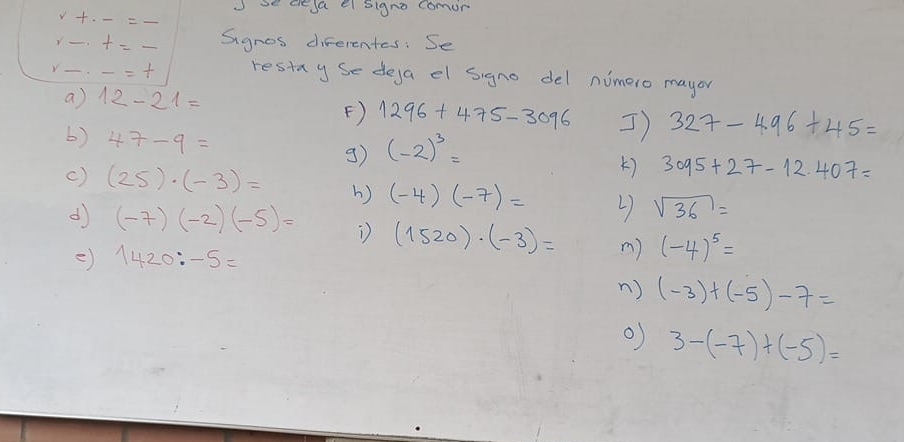 se deja el signo común
+ . - = -
- . + = -
- . - = +
Signos diferentes: Se
resta y se deja el signo del número mayor
a) 12 - 21 =
b) 47 - 9 =
c) (25) · (-3) =
d) (-7) (-2) (-5) =
e) 1420 : -5 =
F) 1296 + 475 - 3096
g) (-2)³ =
h) (-4) (-7) =
i) (1520) · (-3) =
J) 327 - 496 + 45 =
k) 3095 + 27 - 12.407 =
L) √36 =
m) (-4)⁵ =
n) (-3) + (-5) - 7 =
o) 3 - (-7) + (-5) =